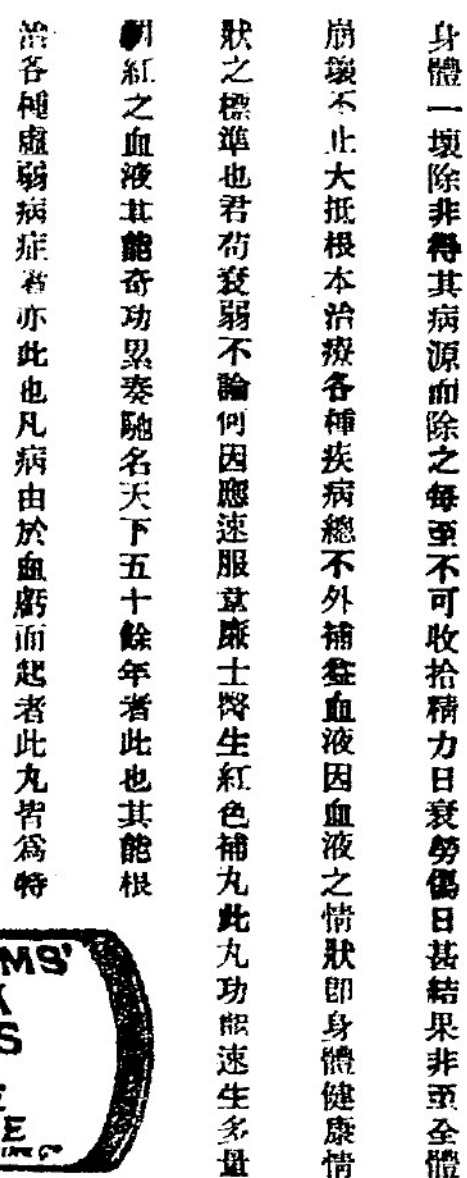 身體一壞除非得其病源而除之每至不可收拾精力日衰勞傷日甚結果非至全體
崩壞不止大抵根本治療各種疾病總不外補益血液因血液之情狀即身體健康情
狀之標準也君苟衰弱不論何因應速服韋廉士醫生紅色補丸此丸功能速生多量
紅之血液其能奇功累奏馳名天下五十餘年者此也其能根
治各種虛弱病症者亦此也凡病由於血虧而起者此丸皆爲特
MS'
K
S
E
E
INE Co